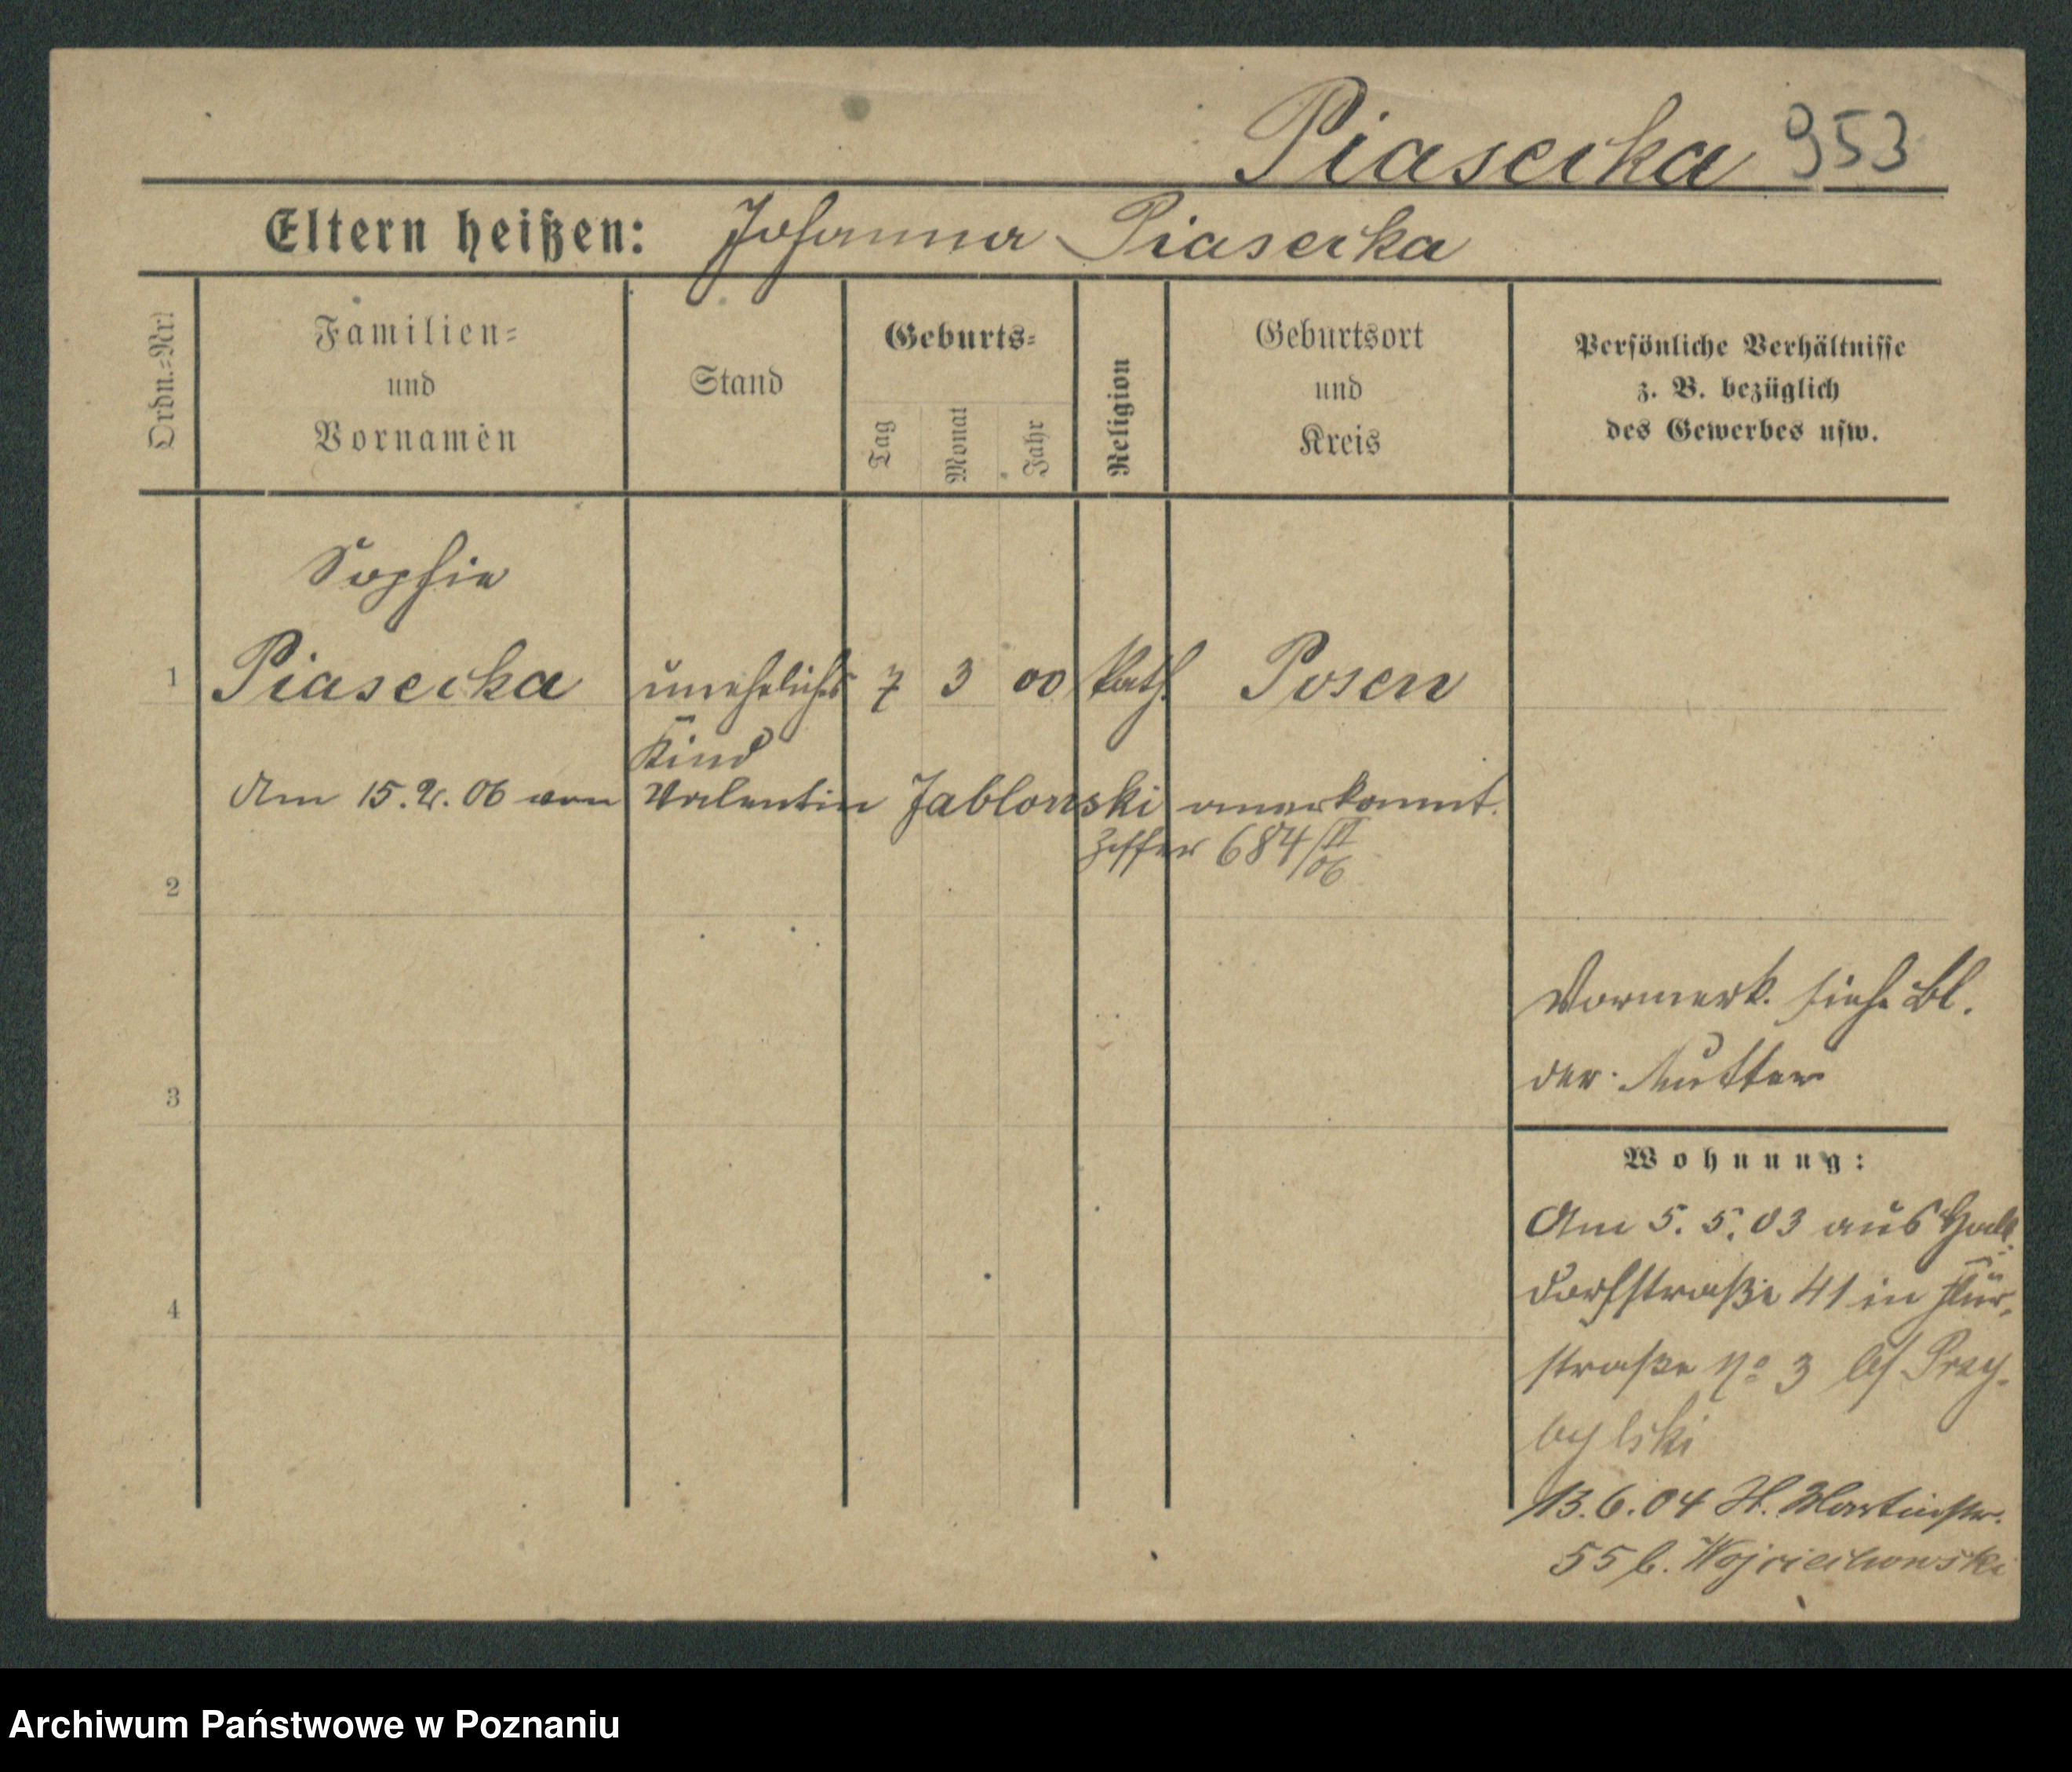 Piasecka 953
Eltern heißen: Johanna Piasecka
Ordn.-Nr.
Familien-
und
Vornamen
Stand
Geburts-
Tag
Monat
Jahr
Religion
Geburtsort
und
Kreis
Persönliche Verhältnisse
z. B. bezüglich
des Gewerbes usw.
Sophie
1 Piasecka unehelichs 7 3 00 kath. Posen
Kind
Am 15.2.06 von Valentin Jablonski anerkannt.
Ziffer 684/II/06
2
Vormerk. siehe Bl.
der Mutter
3
Wohnung:
Am 5.5.03 aus
dorfstraße 41 in
4
straße No 3 b/ Przy-
bylski
13.6.04 St. Martinstr.
55 b. Wojciechowski
Archiwum Państwowe w Poznaniu